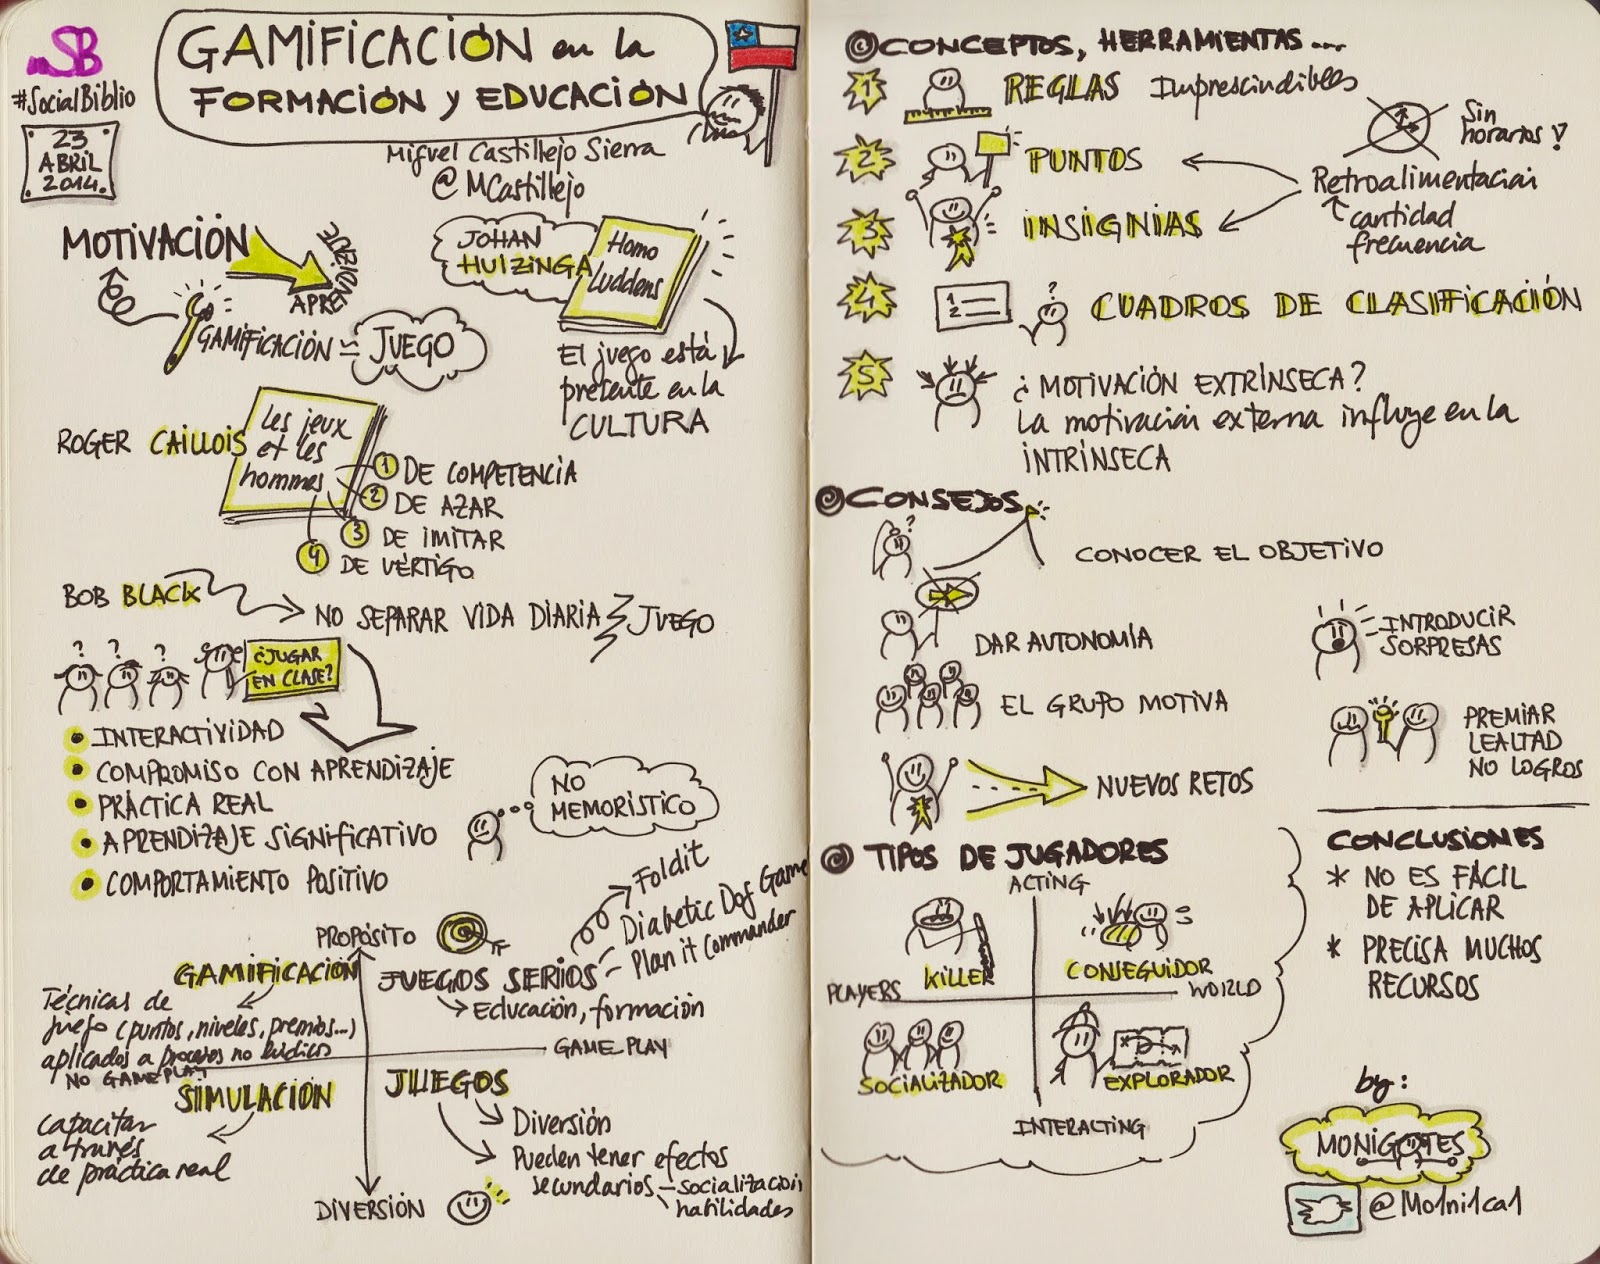 SB
#SocialBiblio
23
ABRIL
2014
GAMIFICACIÓN en la
FORMACIÓN y EDUCACIÓN
Miguel Castillejo Sierra
@MCastillejo
MOTIVACIÓN
APRENDIZAJE
GAMIFICACIÓN = JUEGO
JOHAN
HUIZINGA
Homo
Luddens
El juego está
presente en la
CULTURA
ROGER CAILLOIS
Les jeux
et les
hommes
1 DE COMPETENCIA
2 DE AZAR
3 DE IMITAR
4 DE VÉRTIGO
BOB BLACK
NO SEPARAR VIDA DIARIA JUEGO
? ? ?
¿JUGAR
EN CLASE?
INTERACTIVIDAD
COMPROMISO CON APRENDIZAJE
PRÁCTICA REAL
APRENDIZAJE SIGNIFICATIVO
COMPORTAMIENTO POSITIVO
NO
MEMORÍSTICO
PROPÓSITO
GAMIFICACIÓN
Técnicas de
juego (puntos, niveles, premios...)
aplicados a procesos no lúdicos
NO GAMEPLAY
JUEGOS SERIOS
Foldit
Diabetic Dog Game
Plan it Commander
Educación, formación
GAMEPLAY
SIMULACIÓN
capacitar
a través
de práctica real
JUEGOS
Diversión
Pueden tener efectos
secundarios - socialización
habilidades
DIVERSIÓN
CONCEPTOS, HERRAMIENTAS...
1 REGLAS Imprescindibles
2 PUNTOS
3 INSIGNIAS
Sin
horarios!
Retroalimentación
cantidad
frecuencia
4 1- 2- ? CUADROS DE CLASIFICACIÓN
5 ¿MOTIVACIÓN EXTRÍNSECA?
La motivación externa influye en la
INTRÍNSECA
CONSEJOS
?
CONOCER EL OBJETIVO
DAR AUTONOMÍA
EL GRUPO MOTIVA
NUEVOS RETOS
INTRODUCIR
SORPRESAS
PREMIAR
LEALTAD
NO LOGROS
TIPOS DE JUGADORES
ACTING
KILLER
CONSEGUIDOR
PLAYERS
WORLD
SOCIALIZADOR
EXPLORADOR
INTERACTING
CONCLUSIONES
* NO ES FÁCIL
DE APLICAR
* PRECISA MUCHOS
RECURSOS
by:
MONIGOTES
@Mo1ni1ca1